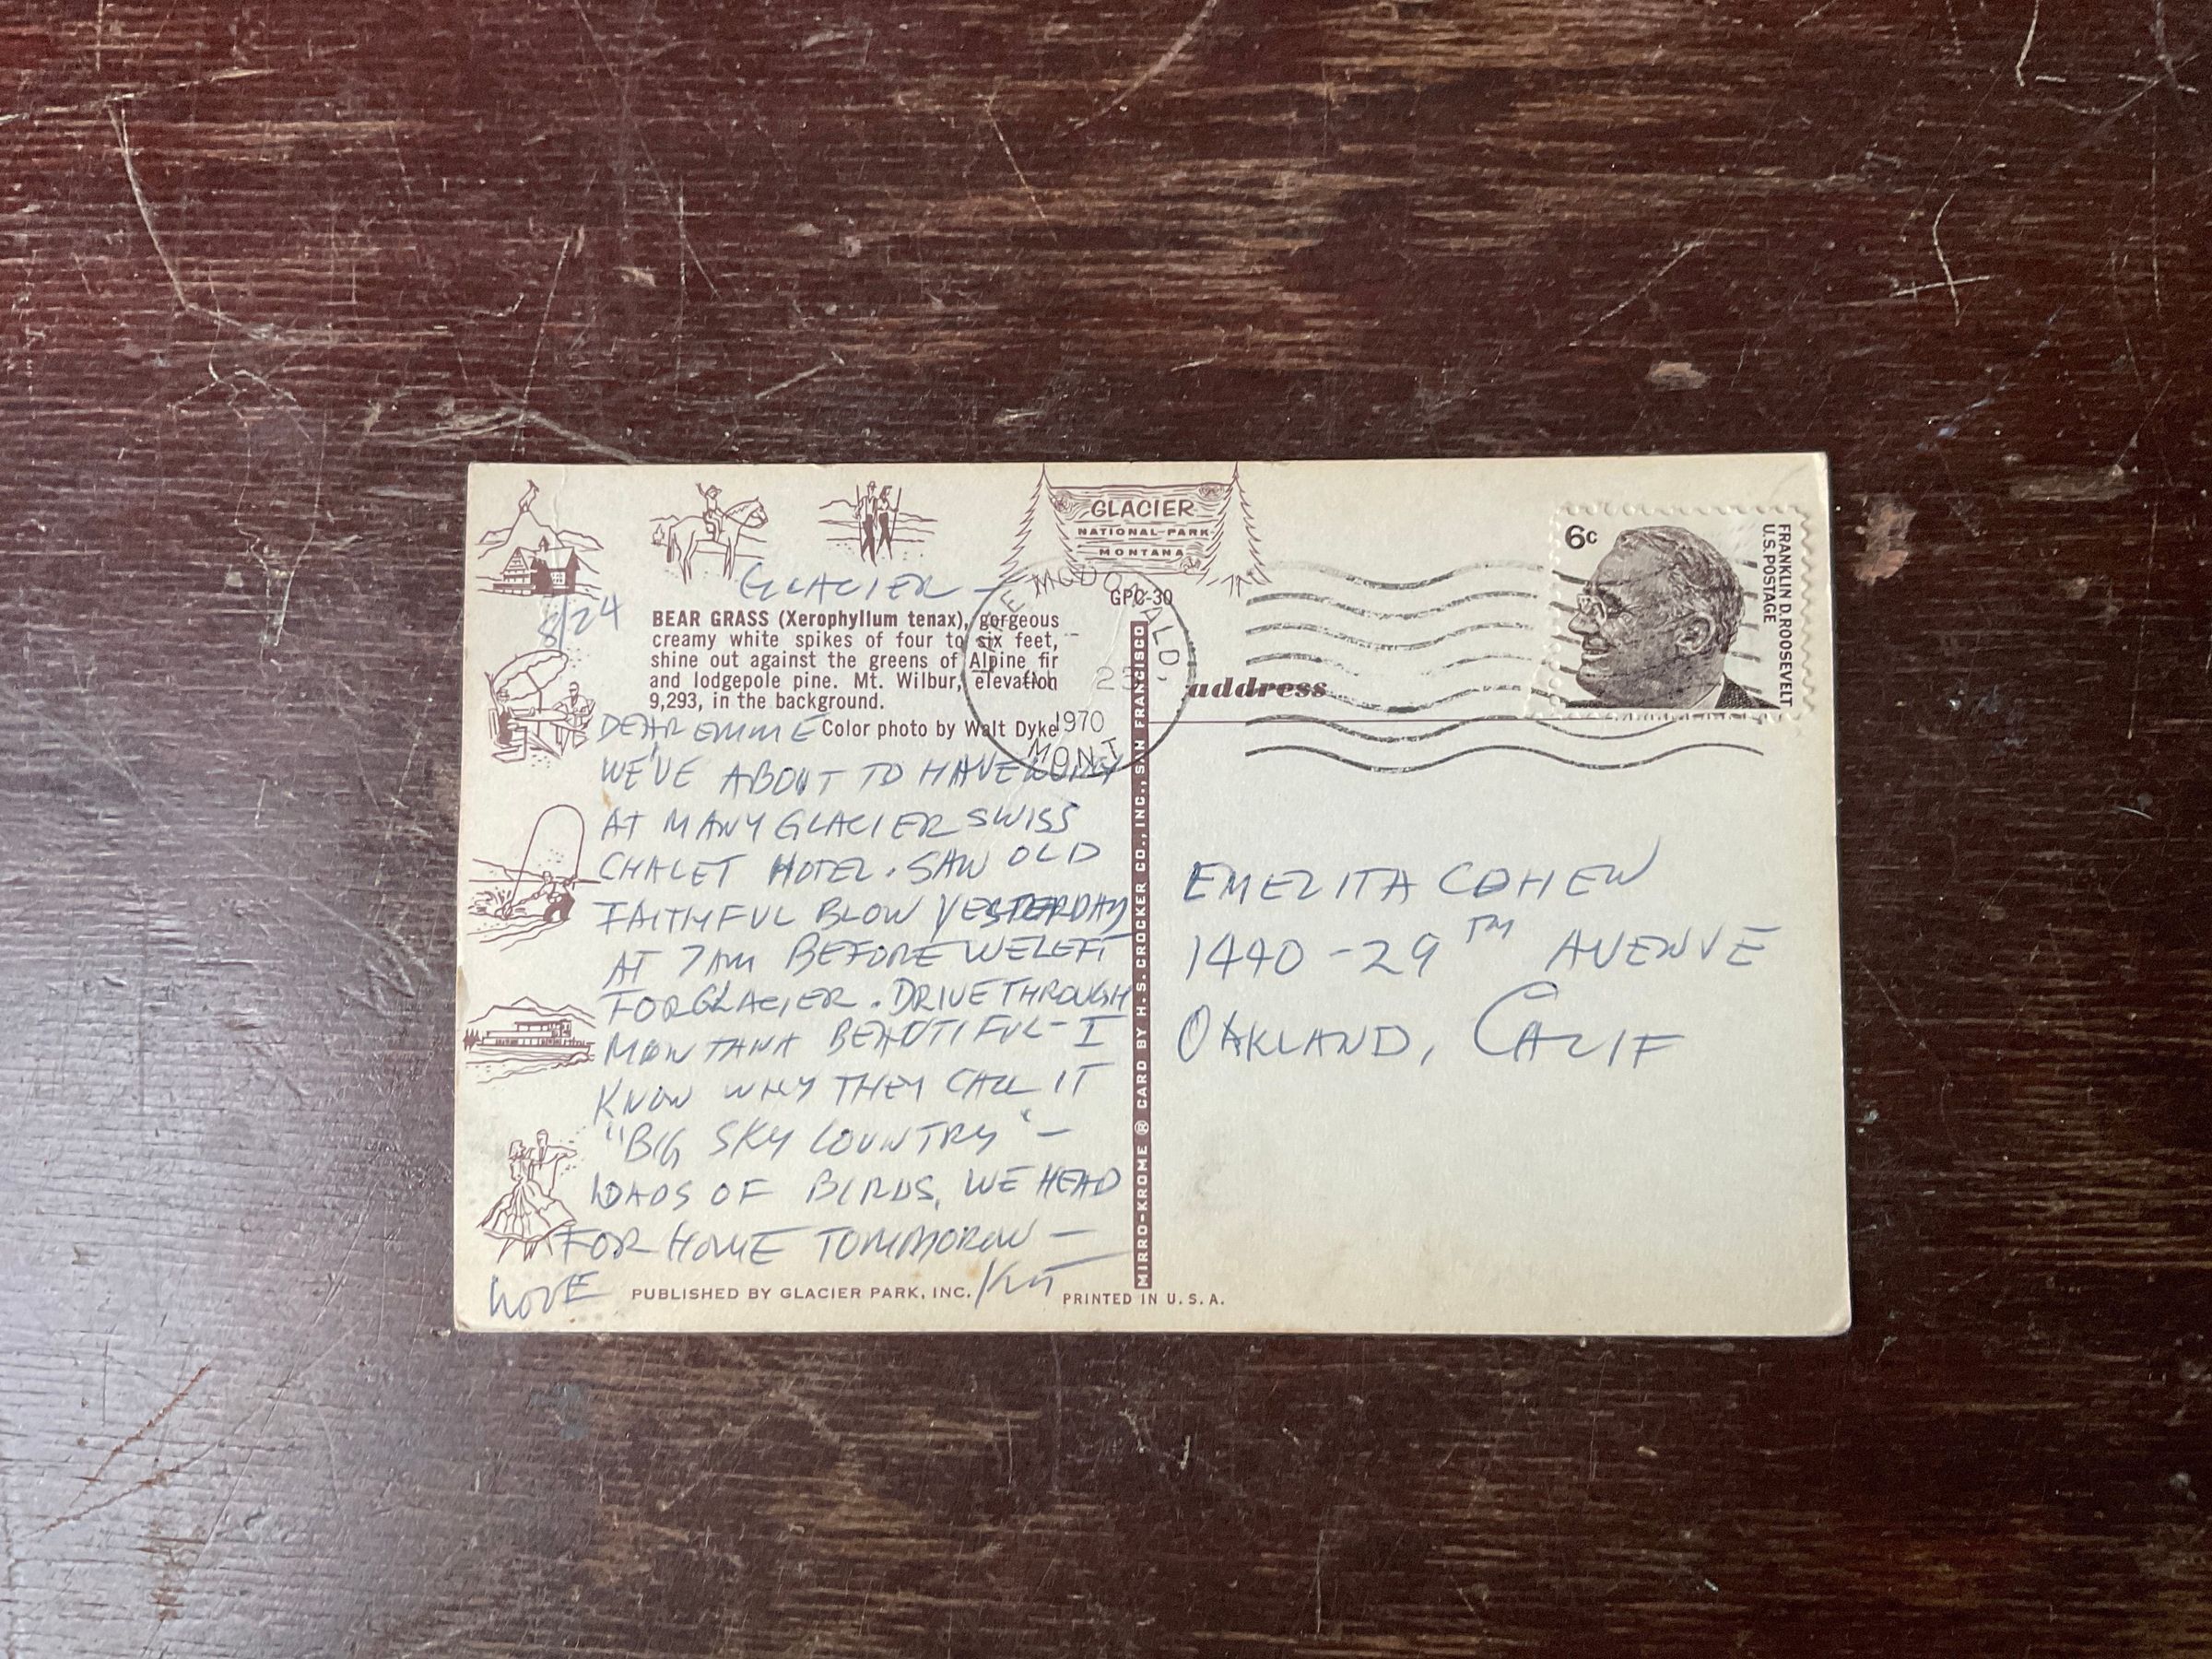 GLACIER
NATIONAL-PARK
MONTANA
GLACIER -
GPC-30
8/24
BEAR GRASS (Xerophyllum tenax), gorgeous
creamy white spikes of four to six feet,
shine out against the greens of Alpine fir
and lodgepole pine. Mt. Wilbur, elevation
9,293, in the background.
Color photo by Walt Dyke
DEAR EMME
WE'VE ABOUT TO HAVE LUNCH
AT MANY GLACIER SWISS
CHALET HOTEL. SAW OLD
FAITHFUL BLOW YESTERDAY
AT 7AM BEFORE WE LEFT
FOR GLACIER. DRIVE THROUGH
MONTANA BEAUTIFUL - I
KNOW WHY THEY CALL IT
"BIG SKY COUNTRY" -
LOADS OF BIRDS. WE HEAD
FOR HOME TOMMOROW -
LOVE
PUBLISHED BY GLACIER PARK, INC.
PRINTED IN U.S.A.
MIRRO-KROME ® CARD BY H.S. CROCKER CO., INC., SAN FRANCISCO
E MCDONALD,
25
1970
MONT
address
6c
FRANKLIN D. ROOSEVELT
U.S. POSTAGE
EMELITA COHEN
1440 - 29TH AVENUE
OAKLAND, CALIF